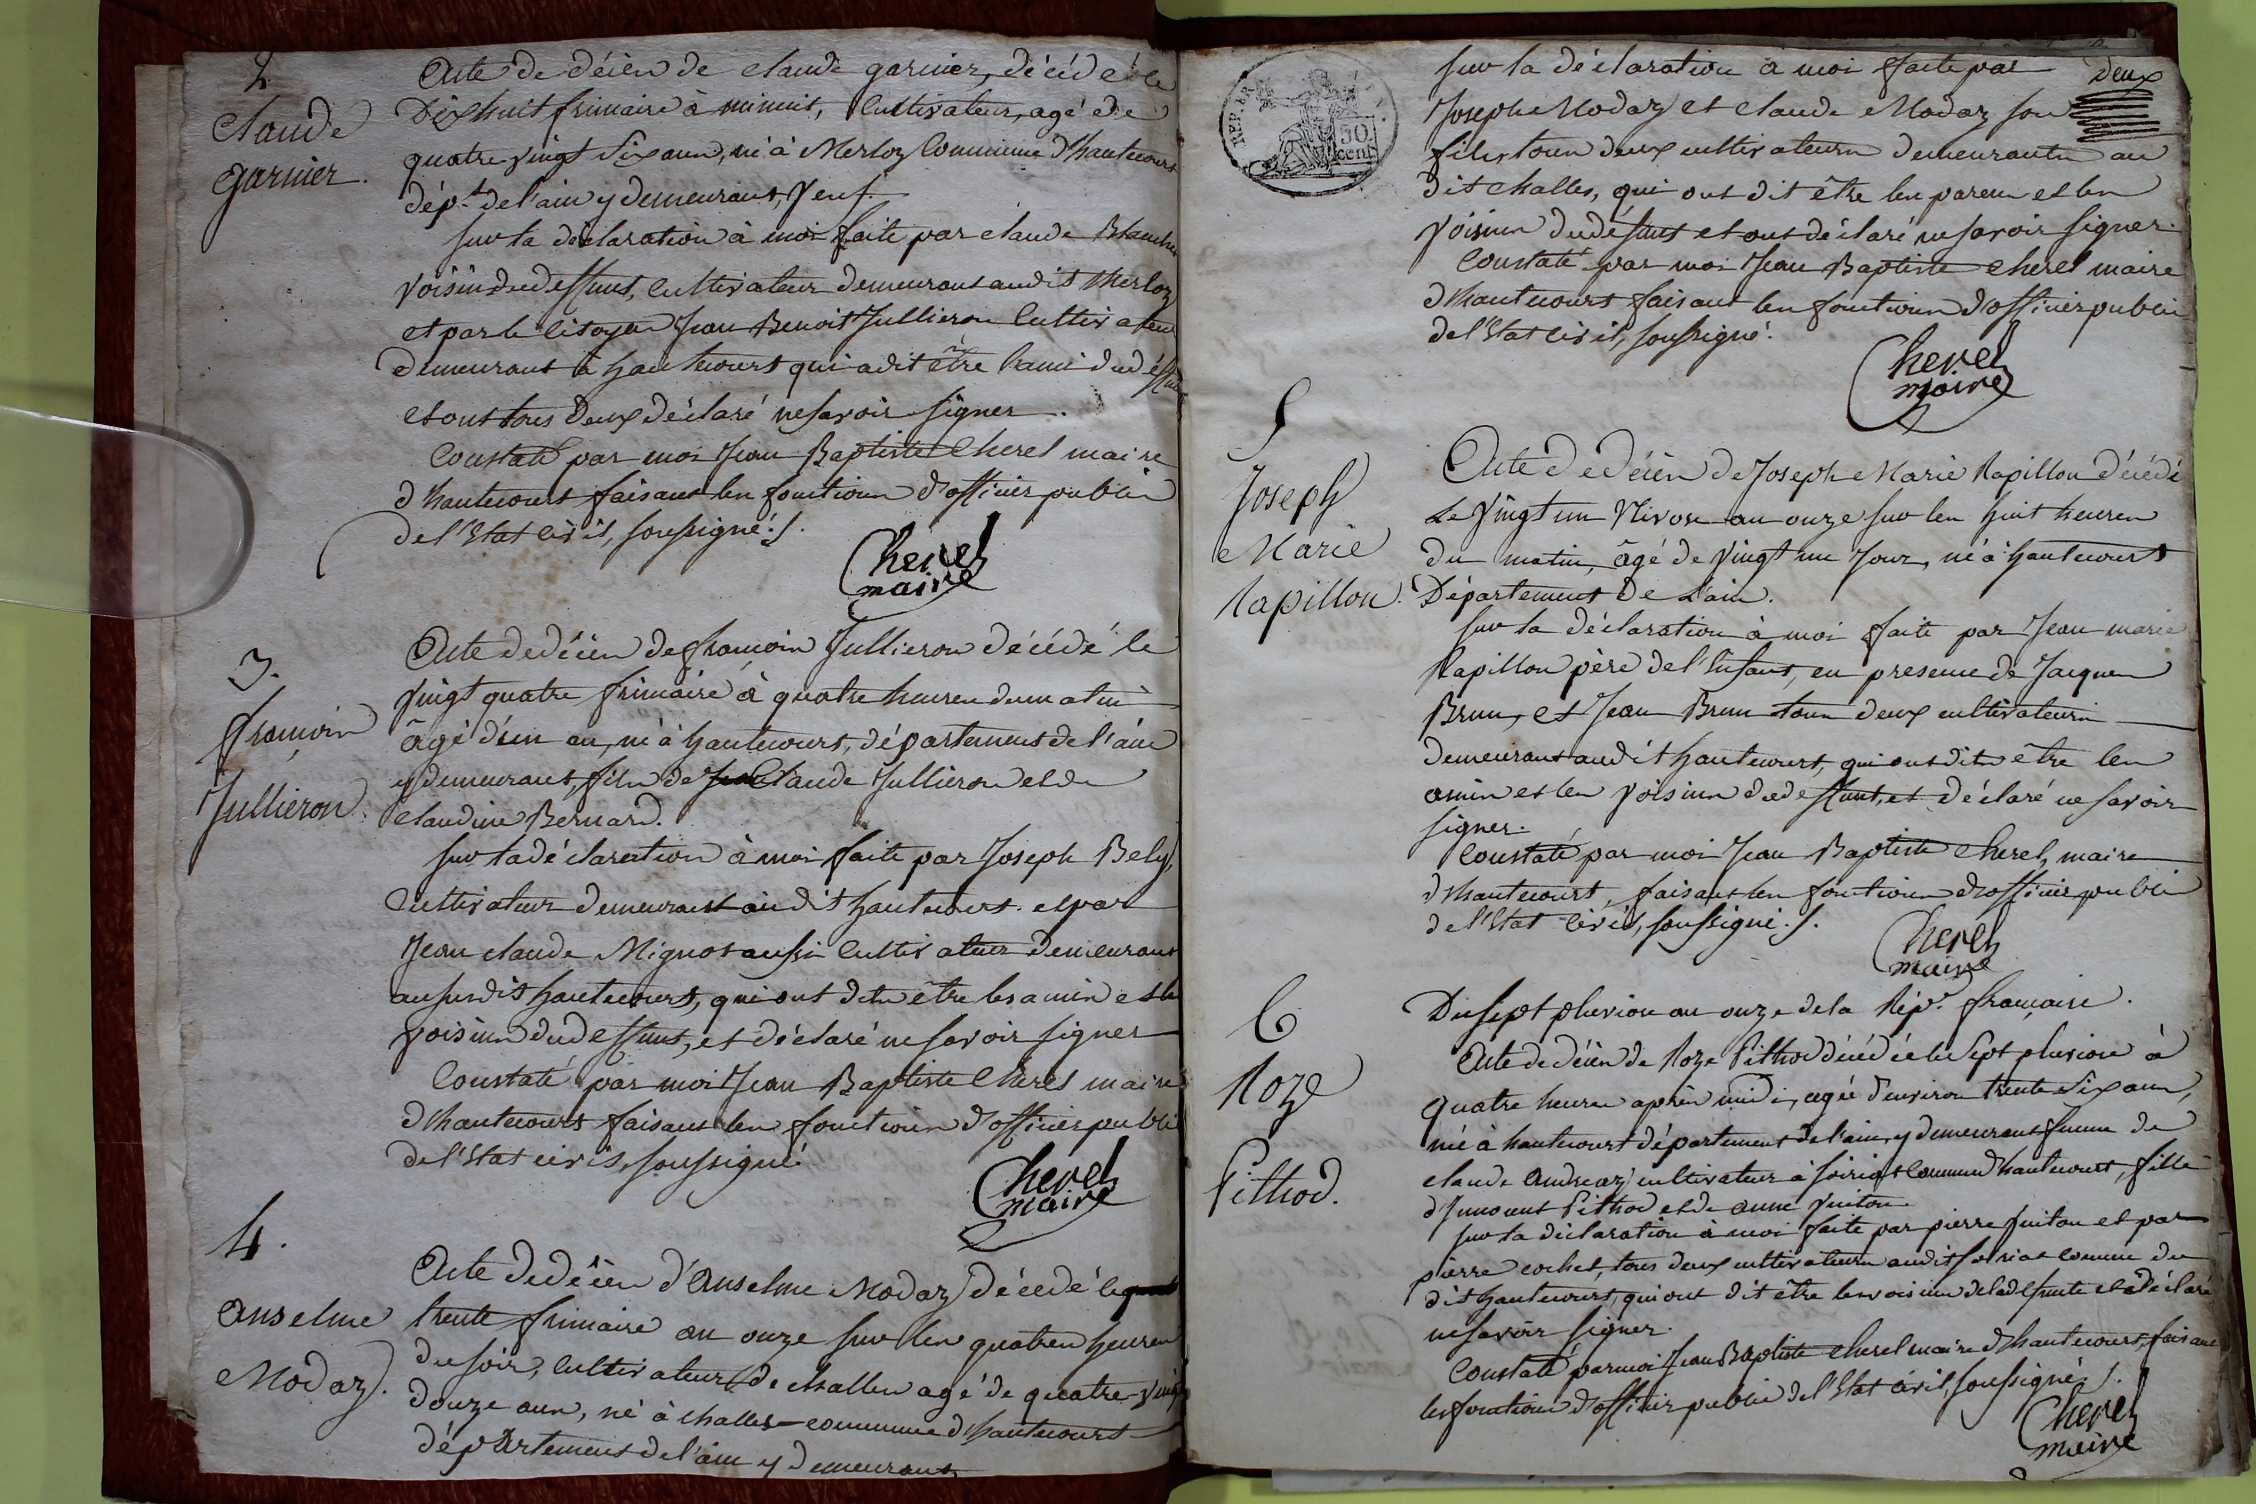 2
Claude
garnier.
Acte de décèn de claude garnier, décédé le
Dixhuit frimaire à minuit, Cultivateur, agé de
quatre vingt Six ann, né à Merloz Commune d'hautecourt
dép.t de l'ain y demeurant, Veuf.
sur la déclaration à moi faite par claude Blanchet
voisin du deffunt, Cultivateur demeurant audit Merloz
et par le Citoyen Jean Benoit Jullieron Cultivateur
demeurant à hautecourt qui a dit être l'ami du déffunt
et ont tous deux déclaré ne savoir signer.
Constaté par moi Jean Baptiste Cherel maire
d'hautecourt faisant len fonctionn d'officier public
de l'Etat civil, soussigné ./.
Cherel
maire
3.
françoin
Jullieron.
Acte de décèn de françoin Jullieron décédé le
vingt quatre frimaire à quatre heuren du matin
âgé d'un an, né à hautecourt, département de l'ain
y demeurant, filn de Claude Jullieron et de
claudine Bernard.
sur la déclaration à moi faite par Joseph Bely,
Cultivateur demeurant au dit hautecourt. et par
Jean claude Mignot aussi Cultivateur demeurant
au susdit hautecourt, qui ont dit être les amin et len
voisinn du deffunt, et déclaré ne savoir signer
Constaté par moi Jean Baptiste Cherel maire
d'hautecourt faisant len fonctionn d'officier public
de l'Etat civil, soussigné
Cherel
maire
4.
Anselme
Modaz.
Acte de décèn d'Anselme Modaz décédé le
trente frimaire an onze sur len quatren heuren
du soir, Cultivateur de challen agé de quatre-vingt
douze ann, né à challes commune d'hautecourt
département de l'ain y demeurant
deux
REP. FRA.
50
cent
sur la déclaration à moi faite par
Joseph Modaz et claude Modaz son
filn, toun deux cultivateurn demeurantn au
dit challes, qui ont dit être len parenn et len
voisinn du défunt et ont déclaré ne savoir signer.
Constaté par moi Jean Baptiste Cherel maire
d'hautecourt faisant len fonctionn d'officier public
de l'Etat civil, soussigné.
Cherel
maire
5
Joseph
Marie
Rapillon.
Acte de décèn de Joseph Marie Rapillon décédé
Le Vingt un Nivose an onze sur len huit heuren
du matin, âgé de vingt un Jour, né à hautecourt
Département de L'ain.
sur la déclaration à moi faite par Jean marie
Rapillon père de l'Enfant, en presence de Jacquen
Brun, et Jean Brun toun deux cultivateurn
demeurant audit hautecourt, qui ont dit être len
amin et len voisinn du deffunt, et déclaré ne savoir
signer.
Constaté par moi Jean Baptiste Cherel, maire
d'hautecourt, faisant len fonctionn d'officier public
de l'Etat civil, soussigné ./.
Cherel
maire
6
Roze
Pithod.
Du sept pluviose an onze de la Rép.e française.
Acte de décèn de Roze Pithod décédée le Sept pluviose à
quatre heuren aprèn midi, agée d'environ trente Six ann,
née à hautecourt département de l'ain, y demeurant femme de
claude Andreaz cultivateur à soiriat Commune d'hautecourt, fille
d'Innocent Pithod et de anne Vuiton.
sur la déclaration à moi faite par pierre Vuiton et par
pierre cochet, tous deux cultivateurn audit soiriat commune du
dit hautecourt, qui ont dit être len voisinn de la deffunte et a déclaré
ne savoir signer.
Constaté par moi Jean Baptiste Cherel maire d'hautecourt, faisant
les fonctionn d'officier public de l'Etat civil, soussigné ./.
Cherel
maire